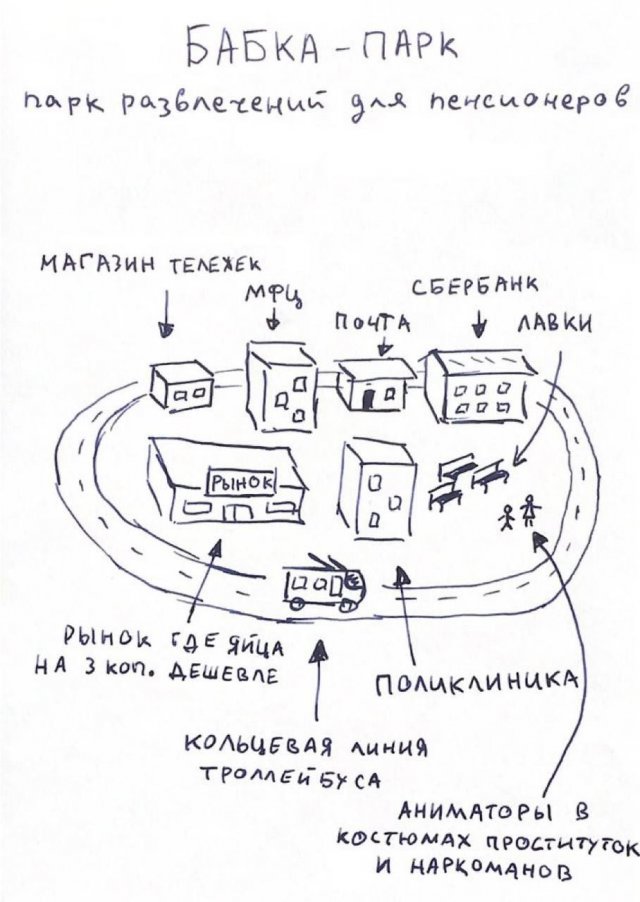 БАБКА - ПАРК
парк развлечений для пенсионеров
МАГАЗИН ТЕЛЕЖЕК
МФЦ
ПОЧТА
СБЕРБАНК
ЛАВКИ
РЫНОК
РЫНОК ГДЕ ЯЙЦА
НА 3 КОП. ДЕШЕВЛЕ
ПОЛИКЛИНИКА
КОЛЬЦЕВАЯ ЛИНИЯ
ТРОЛЛЕЙБУСА
АНИМАТОРЫ В
КОСТЮМАХ ПРОСТИТУТОК
И НАРКОМАНОВ